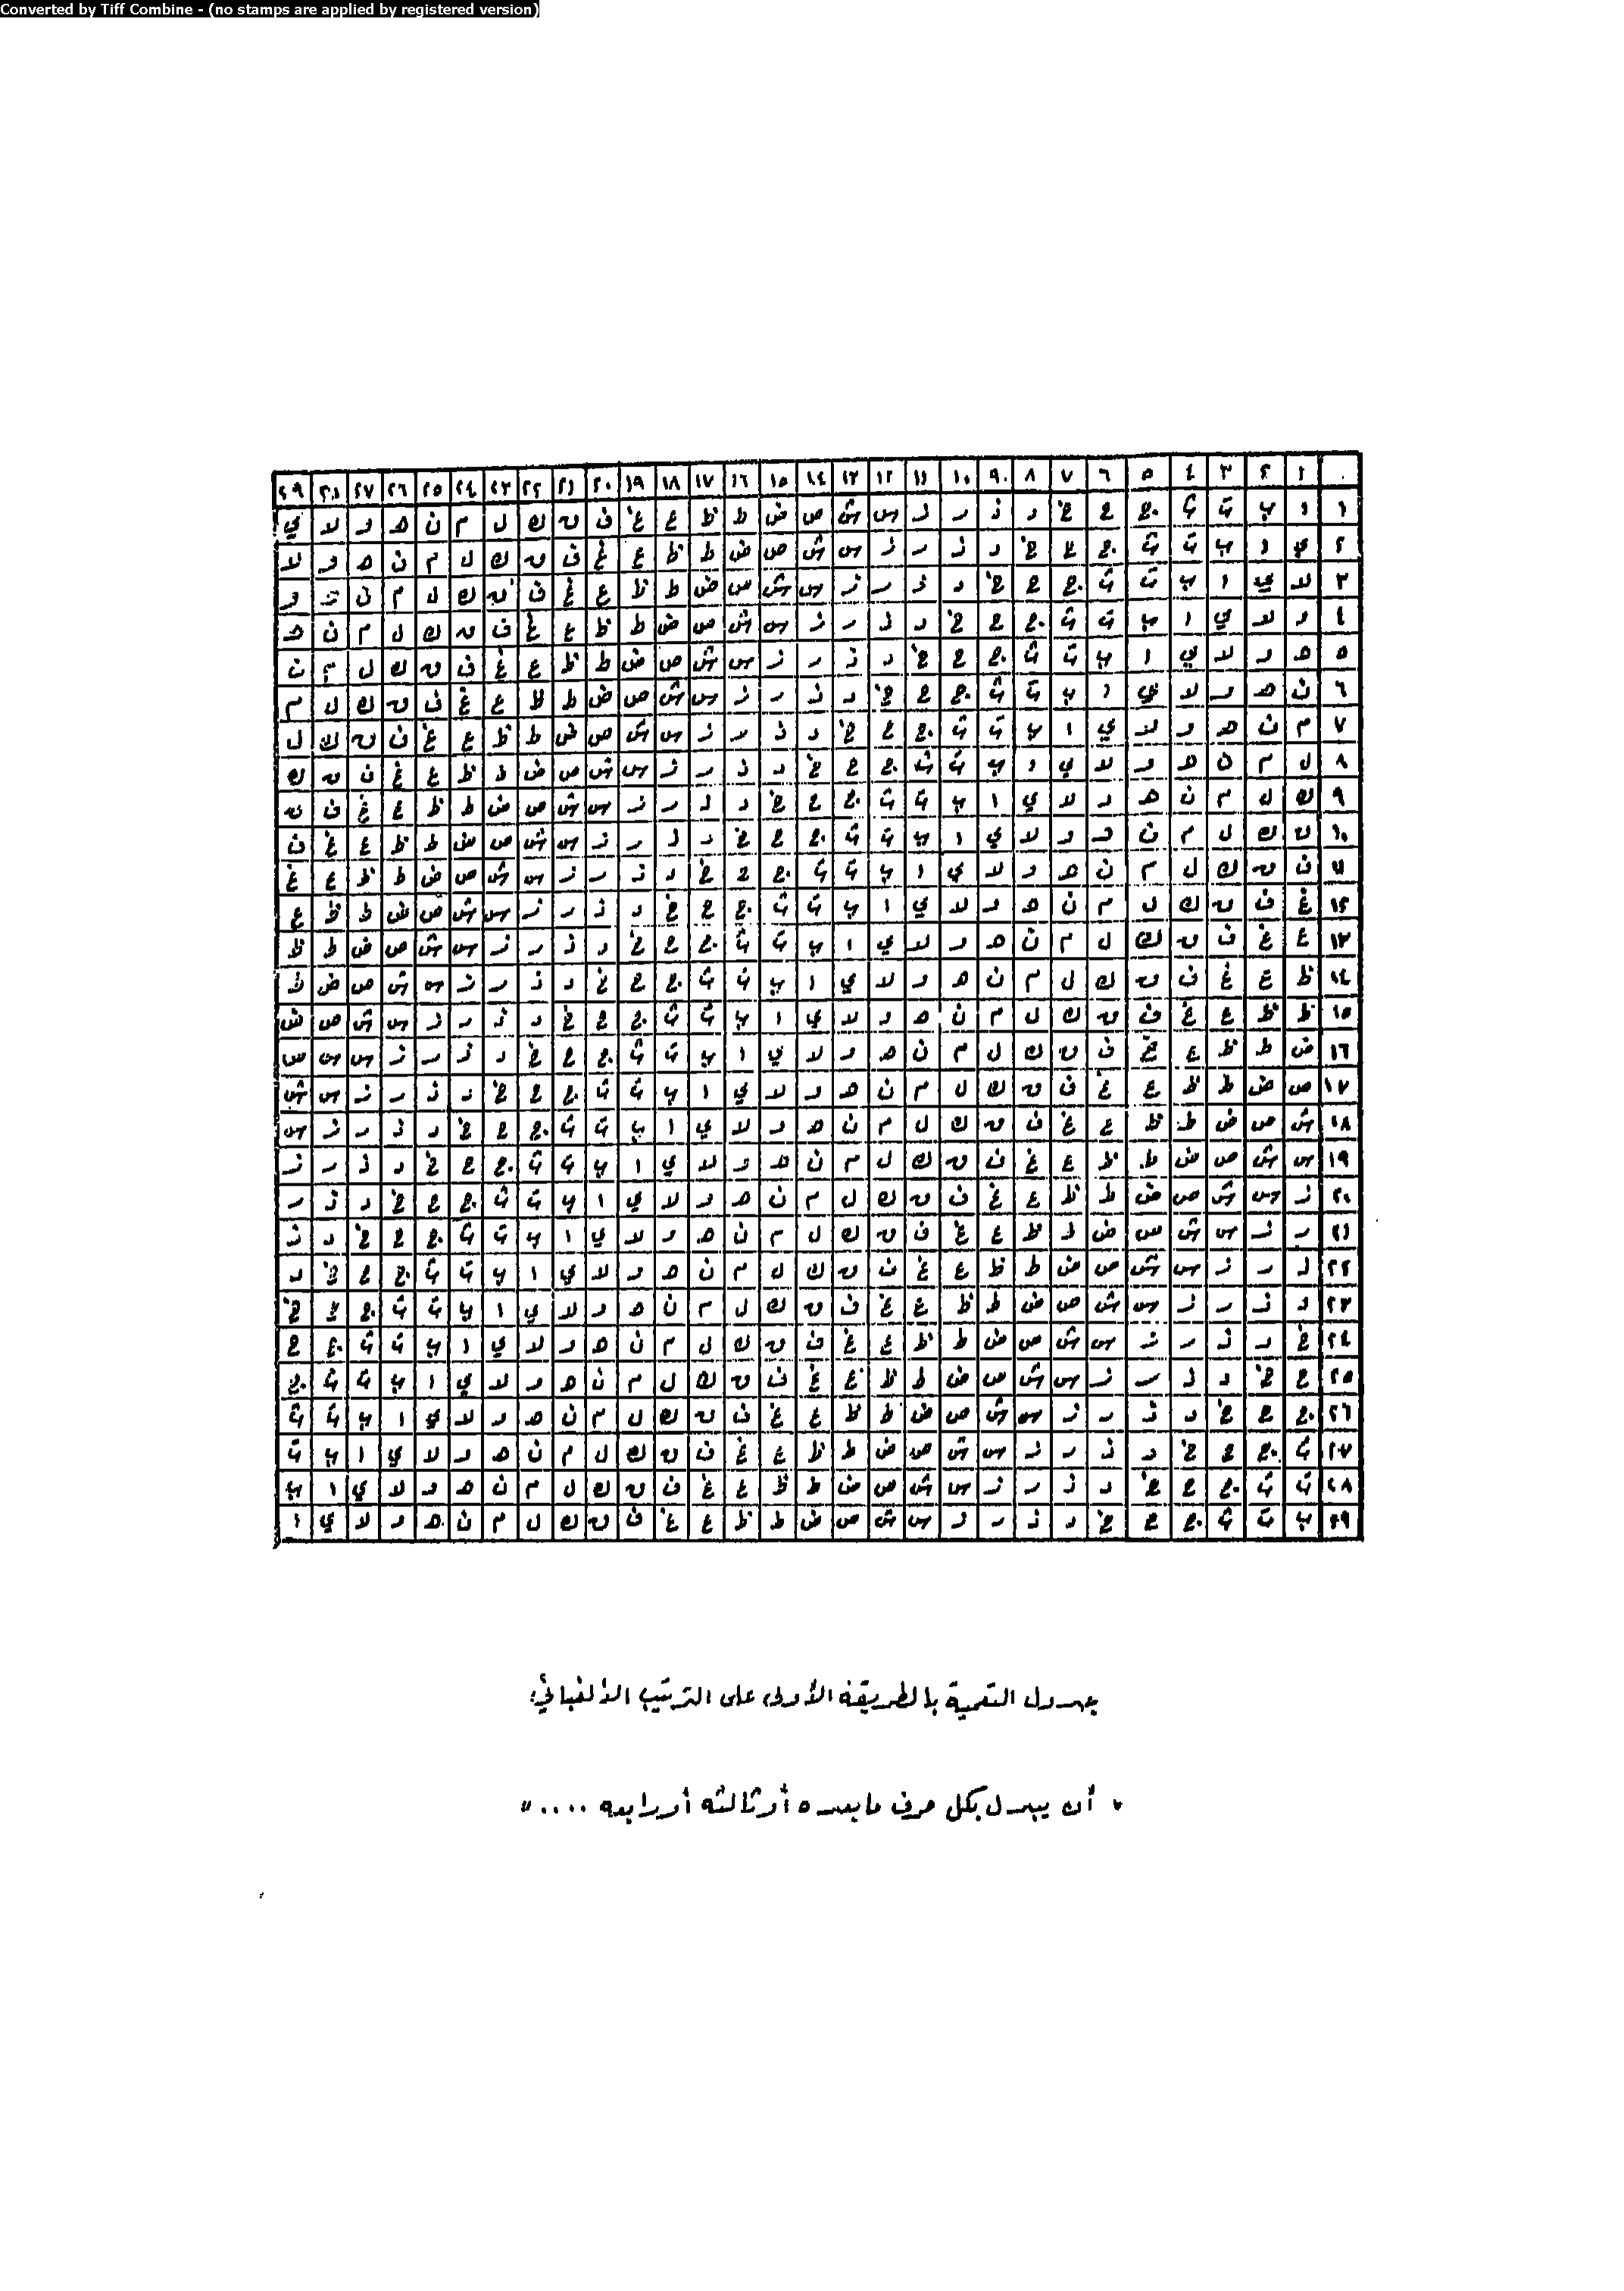 Converted by Tiff Combine - (no stamps are applied by registered version)
. ١ ٢ ٣ ٤ ٥ ٦ ٧ ٨ ٩ ١٠ ١١ ١٢ ١٣ ١٤ ١٥ ١٦ ١٧ ١٨ ١٩ ٢٠ ٢١ ٢٢ ٢٣ ٢٤ ٢٥ ٢٦ ٢٧ ٢٨ ٢٩
١ ا ب ت ث ج ح خ د ذ ر ز س ش ص ض ط ظ ع غ ف ق ك ل م ن ه و لا ي
٢ ي ا ب ت ث ج ح خ د ذ ر ز س ش ص ض ط ظ ع غ ف ق ك ل م ن ه و لا
٣ لا ي ا ب ت ث ج ح خ د ذ ر ز س ش ص ض ط ظ ع غ ف ق ك ل م ن ه و
٤ و لا ي ا ب ت ث ج ح خ د ذ ر ز س ش ص ض ط ظ ع غ ف ق ك ل م ن ه
٥ ه و لا ي ا ب ت ث ج ح خ د ذ ر ز س ش ص ض ط ظ ع غ ف ق ك ل م ن
٦ ن ه و لا ي ا ب ت ث ج ح خ د ذ ر ز س ش ص ض ط ظ ع غ ف ق ك ل م
٧ م ن ه و لا ي ا ب ت ث ج ح خ د ذ ر ز س ش ص ض ط ظ ع غ ف ق ك ل
٨ ل م ن ه و لا ي ا ب ت ث ج ح خ د ذ ر ز س ش ص ض ط ظ ع غ ف ق ك
٩ ك ل م ن ه و لا ي ا ب ت ث ج ح خ د ذ ر ز س ش ص ض ط ظ ع غ ف ق
١٠ ق ك ل م ن ه و لا ي ا ب ت ث ج ح خ د ذ ر ز س ش ص ض ط ظ ع غ ف
١١ ف ق ك ل م ن ه و لا ي ا ب ت ث ج ح خ د ذ ر ز س ش ص ض ط ظ ع غ
١٢ غ ف ق ك ل م ن ه و لا ي ا ب ت ث ج ح خ د ذ ر ز س ش ص ض ط ظ ع
١٣ ع غ ف ق ك ل م ن ه و لا ي ا ب ت ث ج ح خ د ذ ر ز س ش ص ض ط ظ
١٤ ظ ع غ ف ق ك ل م ن ه و لا ي ا ب ت ث ج ح خ د ذ ر ز س ش ص ض ط
١٥ ط ظ ع غ ف ق ك ل م ن ه و لا ي ا ب ت ث ج ح خ د ذ ر ز س ش ص ض
١٦ ض ط ظ ع غ ف ق ك ل م ن ه و لا ي ا ب ت ث ج ح خ د ذ ر ز س ش ص
١٧ ص ض ط ظ ع غ ف ق ك ل م ن ه و لا ي ا ب ت ث ج ح خ د ذ ر ز س ش
١٨ ش ص ض ط ظ ع غ ف ق ك ل م ن ه و لا ي ا ب ت ث ج ح خ د ذ ر ز س
١٩ س ش ص ض ط ظ ع غ ف ق ك ل م ن ه و لا ي ا ب ت ث ج ح خ د ذ ر ز
٢٠ ز س ش ص ض ط ظ ع غ ف ق ك ل م ن ه و لا ي ا ب ت ث ج ح خ د ذ ر
٢١ ر ز س ش ص ض ط ظ ع غ ف ق ك ل م ن ه و لا ي ا ب ت ث ج ح خ د ذ
٢٢ ذ ر ز س ش ص ض ط ظ ع غ ف ق ك ل م ن ه و لا ي ا ب ت ث ج ح خ د
٢٣ د ذ ر ز س ش ص ض ط ظ ع غ ف ق ك ل م ن ه و لا ي ا ب ت ث ج ح خ
٢٤ خ د ذ ر ز س ش ص ض ط ظ ع غ ف ق ك ل م ن ه و لا ي ا ب ت ث ج ح
٢٥ ح خ د ذ ر ز س ش ص ض ط ظ ع غ ف ق ك ل م ن ه و لا ي ا ب ت ث ج
٢٦ ج ح خ د ذ ر ز س ش ص ض ط ظ ع غ ف ق ك ل م ن ه و لا ي ا ب ت ث
٢٧ ث ج ح خ د ذ ر ز س ش ص ض ط ظ ع غ ف ق ك ل م ن ه و لا ي ا ب ت
٢٨ ت ث ج ح خ د ذ ر ز س ش ص ض ط ظ ع غ ف ق ك ل م ن ه و لا ي ا ب
٢٩ ب ت ث ج ح خ د ذ ر ز س ش ص ض ط ظ ع غ ف ق ك ل م ن ه و لا ي ا
جدول التعمية بالطريقة الأولى على الترتيب الألفبائي:
" أن يبدل بكل حرف ما بعده أو ثالثه أو رابعه .... "